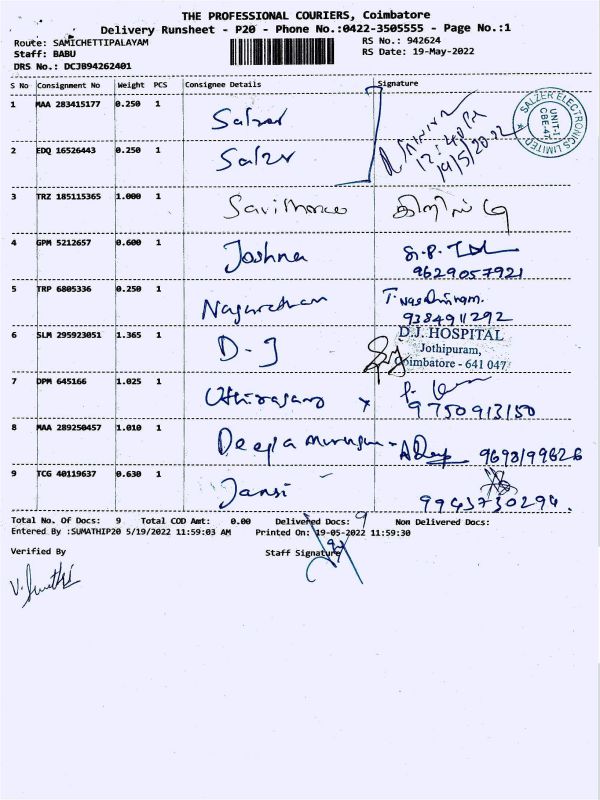 THE PROFESSIONAL COURIERS, Coimbatore
Delivery Runsheet - P20 - Phone No.:0422-3505555 - Page No.:1
Route: SAMICHETTIPALAYAM RS No.: 942624
Staff: BABU RS Date: 19-May-2022
DRS No.: DCJB94262401
S No Consignment No Weight PCS Consignee Details Signature
1 MAA 283415177 0.250 1 Salzer
12:40 PM
19/5/2022
SALZER ELECTRONICS LIMITED
UNIT-1
CBE-47
2 EDQ 16526443 0.250 1 Salzr
3 TRZ 185115365 1.000 1
4 GPM 5212657 0.600 1 Joshna
9629057921
5 TRP 6805336 0.250 1 Nagarathan
9384911292
6 SLM 295923051 1.365 1 D-J
D.J. HOSPITAL
Jothipuram,
Coimbatore - 641 047
7 DPM 645166 1.025 1 x
9750913150
8 MAA 289250457 1.010 1 Deepa Murugan - A Deep 9698199626
9 TCG 40119637 0.630 1 Jansi
9943730294.
Total No. Of Docs: 9 Total COD Amt: 0.00 Delivered Docs: 9 Non Delivered Docs:
Entered By :SUMATHIP20 5/19/2022 11:59:03 AM Printed On: 19-05-2022 11:59:30
Verified By Staff Signature
V. Sumathi